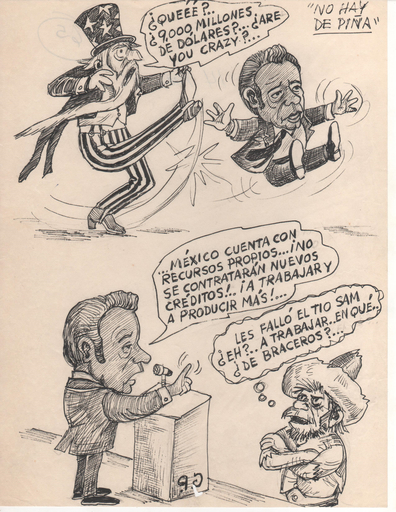 "NO HAY
DE PIÑA"
¿QUEÉÉ?..
¿9,000 MILLONES
DE DÓLARES?...¿ARE
YOU CRAZY?...
...MÉXICO CUENTA CON
RECURSOS PROPIOS...¡NO
SE CONTRATARÁN NUEVOS
CRÉDITOS!..¡A TRABAJAR Y
A PRODUCIR MÁS!...
LES FALLÓ EL TIO SAM
¿EH?..A TRABAJAR..EN QUÉ..
¿DE BRACEROS?...